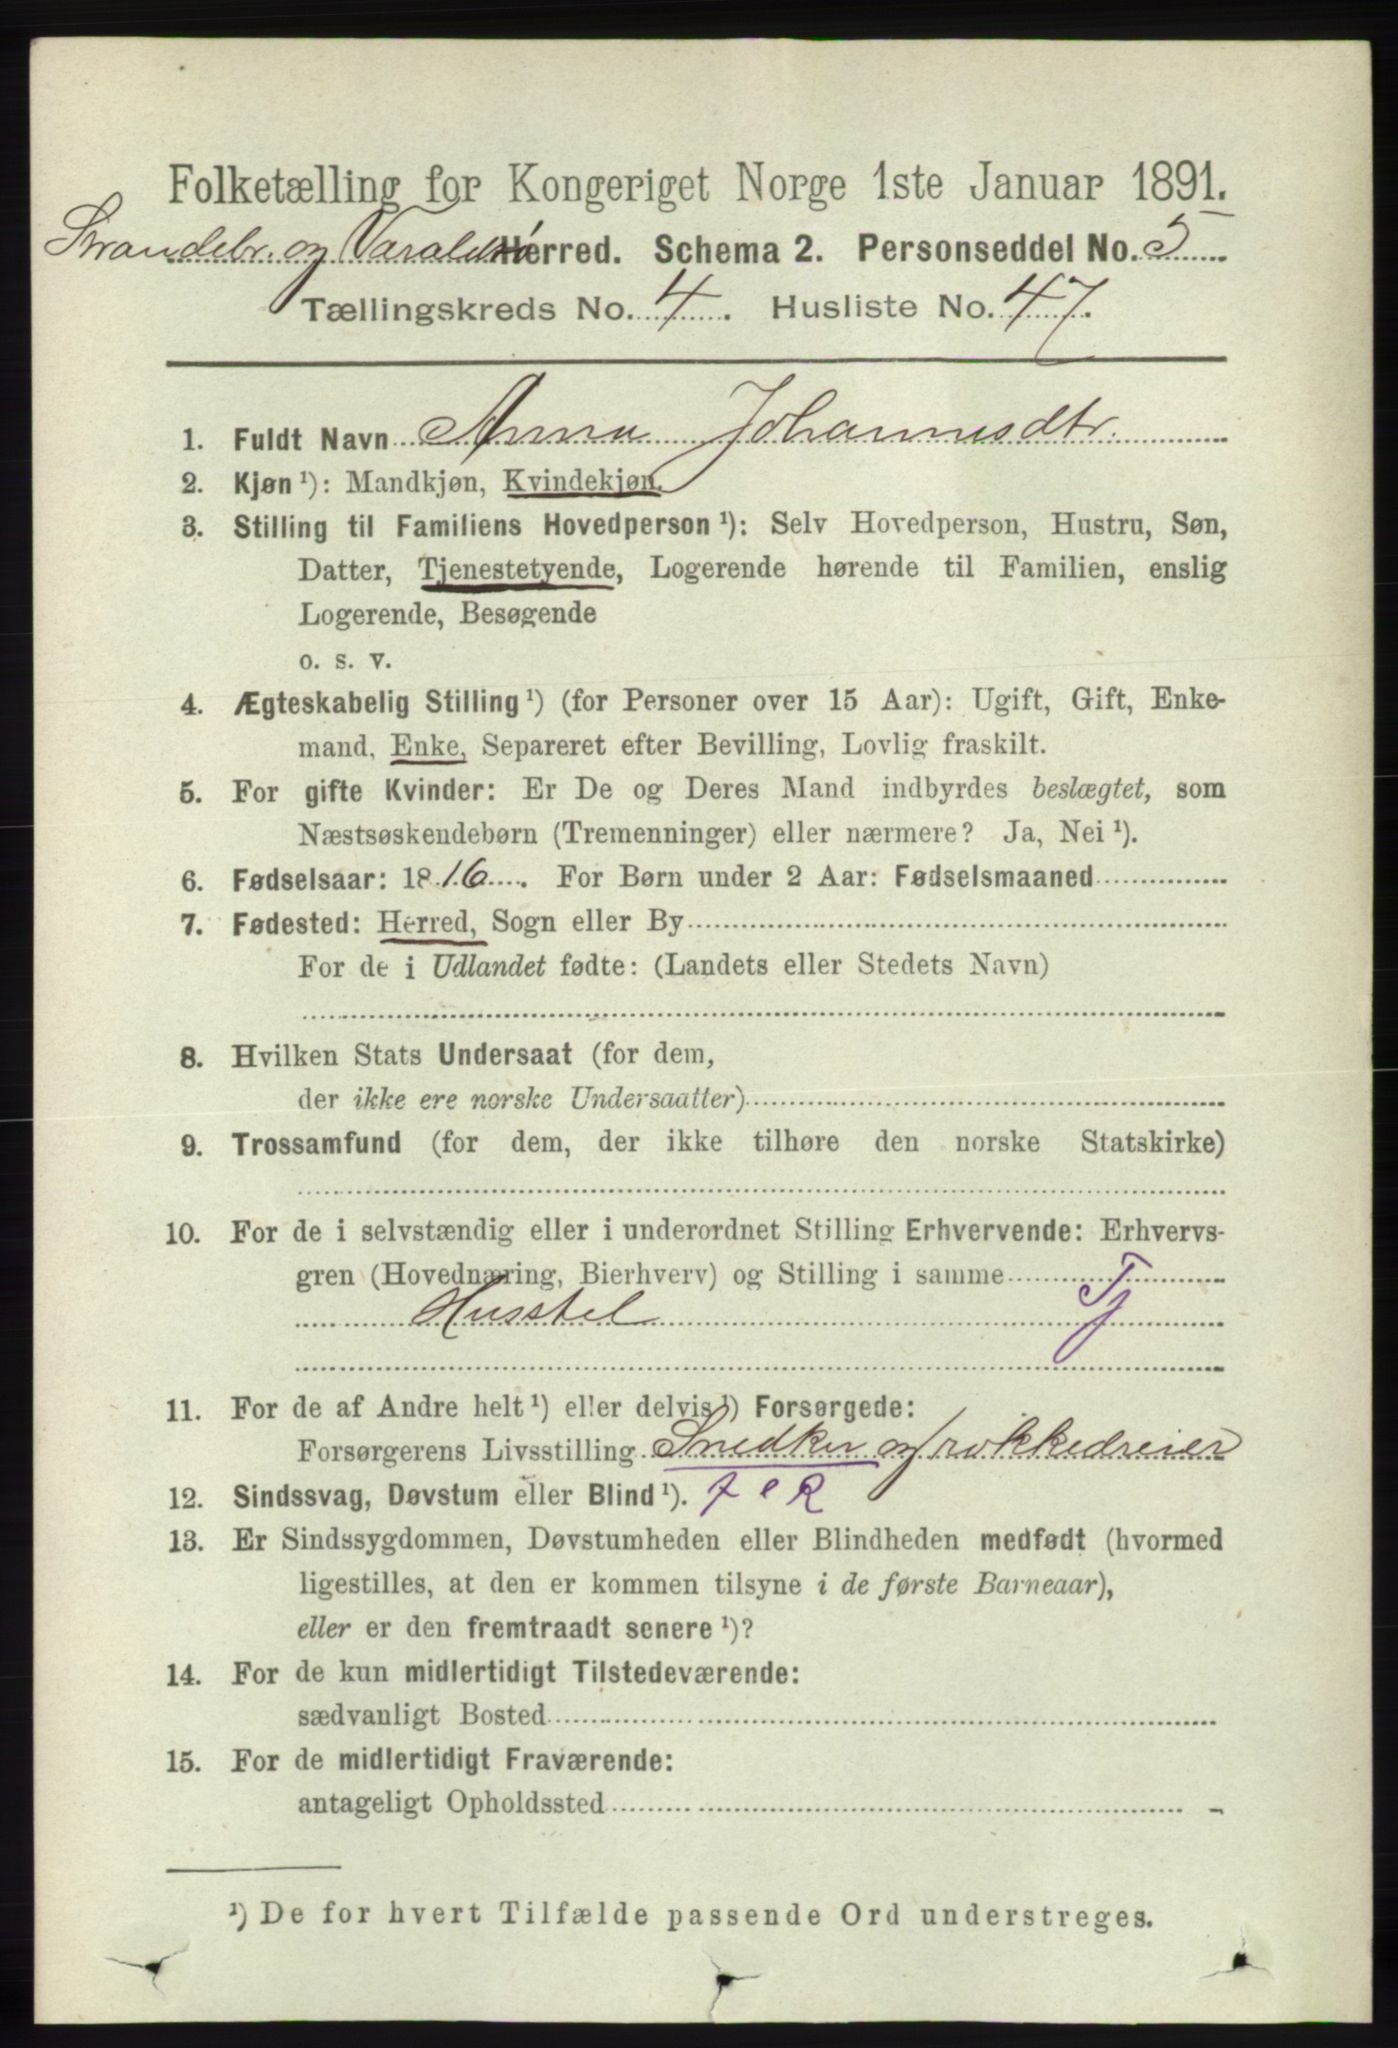 Folketælling for Kongeriget Norge 1ste Januar 1891.
Strandebr. og Varaldsø Herred. Schema 2. Personseddel No. 5
Tællingskreds No. 4. Husliste No. 47.
1. Fuldt Navn Anna Johannesdtr.
2. Kjøn ¹): Mandkjøn, Kvindekjøn.
3. Stilling til Familiens Hovedperson ¹): Selv Hovedperson, Hustru, Søn,
Datter, Tjenestetyende, Logerende hørende til Familien, enslig
Logerende, Besøgende
o. s. v.
4. Ægteskabelig Stilling ¹) (for Personer over 15 Aar): Ugift, Gift, Enke-
mand, Enke, Separeret efter Bevilling, Lovlig fraskilt.
5. For gifte Kvinder: Er De og Deres Mand indbyrdes beslægtet, som
Næstsøskendebørn (Tremenninger) eller nærmere? Ja, Nei ¹).
6. Fødselsaar: 1816. For Børn under 2 Aar: Fødselsmaaned
7. Fødested: Herred, Sogn eller By
For de i Udlandet fødte: (Landets eller Stedets Navn)
8. Hvilken Stats Undersaat (for dem,
der ikke ere norske Undersaatter)
9. Trossamfund (for dem, der ikke tilhøre den norske Statskirke)
10. For de i selvstændig eller i underordnet Stilling Erhvervende: Erhvervs-
gren (Hovednæring, Bierhverv) og Stilling i samme
Husstel Tj
11. For de af Andre helt ¹) eller delvis ¹) Forsørgede:
Forsørgerens Livsstilling Snedker og rokkedreier
12. Sindssvag, Døvstum eller Blind ¹).
13. Er Sindssygdommen, Døvstumheden eller Blindheden medfødt (hvormed
ligestilles, at den er kommen tilsyne i de første Barneaar),
eller er den fremtraadt senere ¹)?
14. For de kun midlertidigt Tilstedeværende:
sædvanligt Bosted
15. For de midlertidigt Fraværende:
antageligt Opholdssted
¹) De for hvert Tilfælde passende Ord understreges.